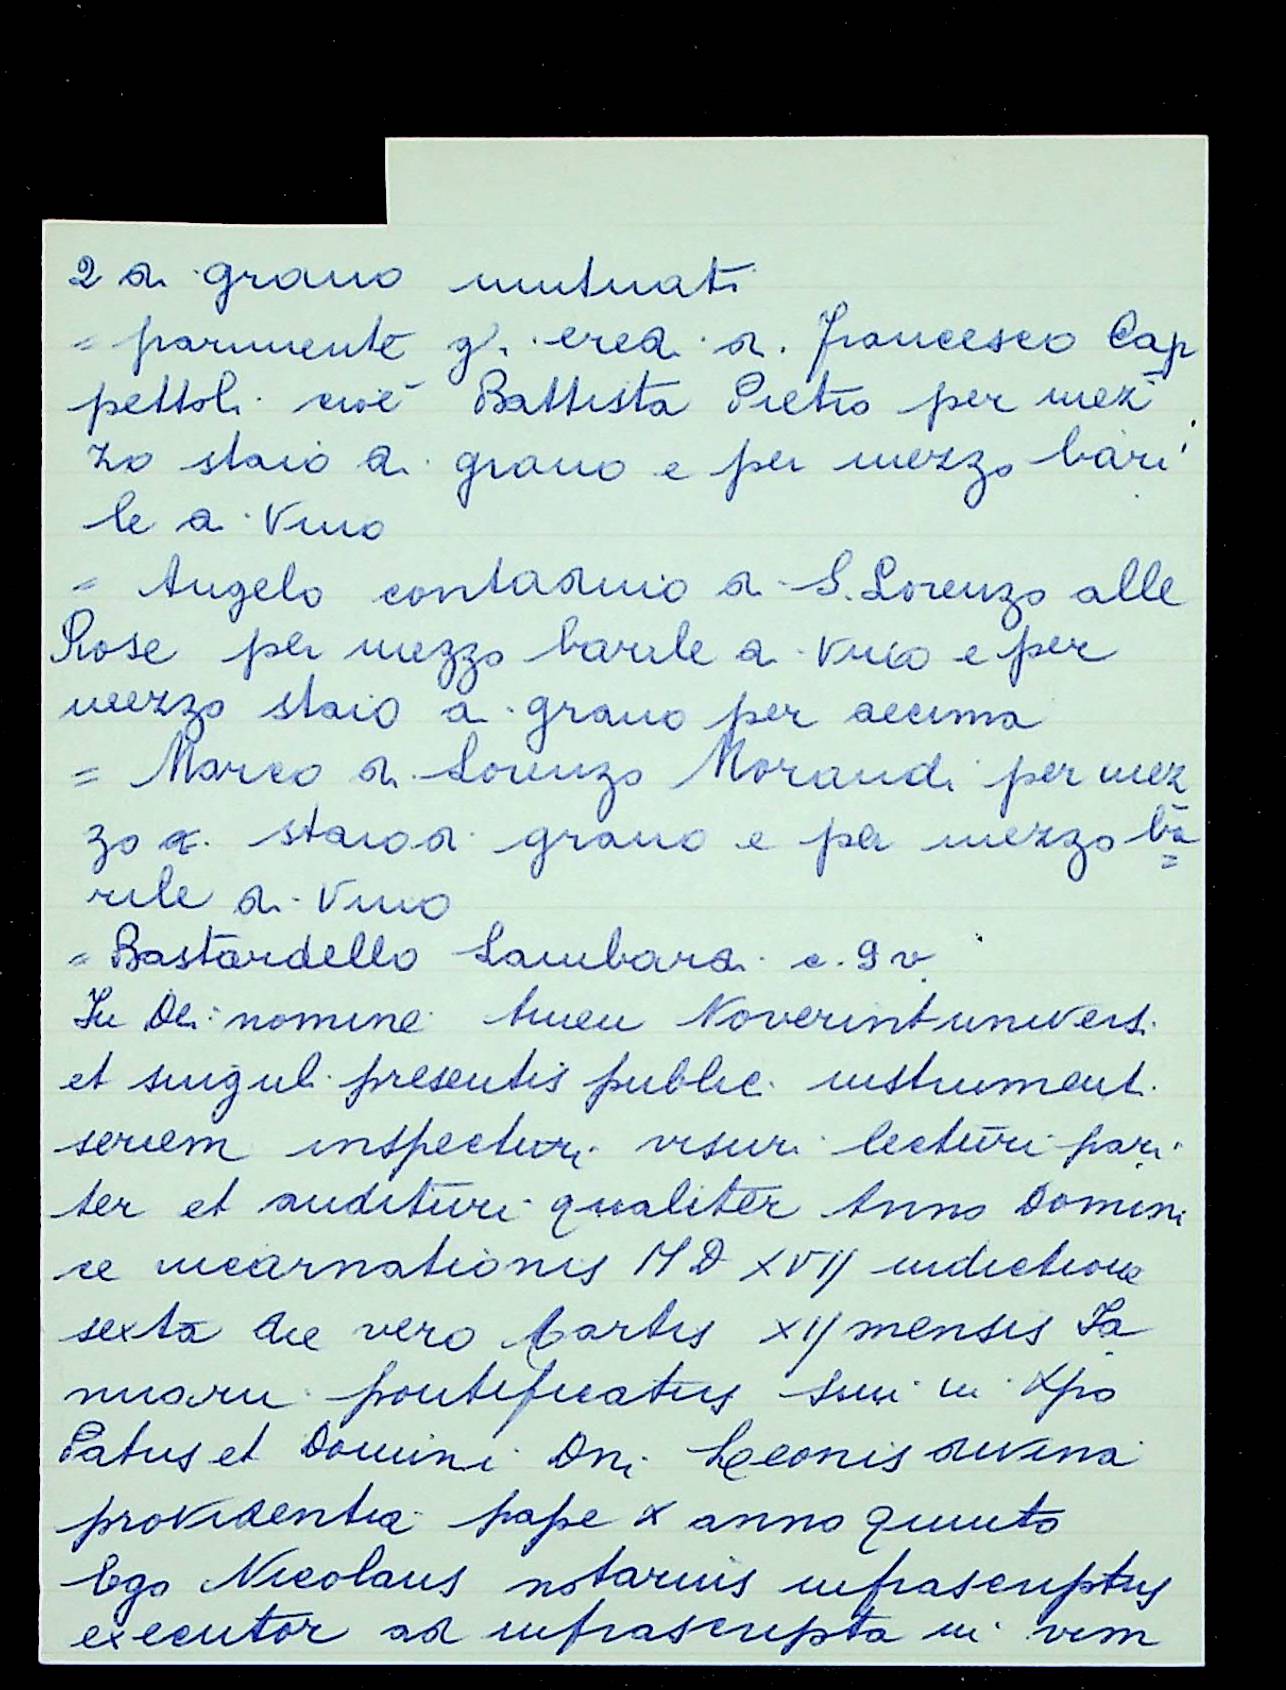 2 di grano mutuati
= parimente gli eredi di Francesco Cap
pettoli cioè Battista Pietro per mez
zo staio di grano e per mezzo bari
le di Vino
= Angelo contadino di S. Lorenzo alle
Rose per mezzo barile di Vino e per
mezzo staio di grano per decima
= Marco di Lorenzo Morandi per mez
zo staio di grano e per mezzo ba=
rile di Vino
= Bastardello Lambardi c. 9 v
In Dei nomine Amen Noverint universi
et singuli presentis publici instrumenti
seriem inspecturi visuri lecturi pari
ter et audituri qualiter Anno Domini
ce incarnationis MDXVII indictione
sexta die vero Martis XII mensis Ia
nuarii pontificatus Smi in Xpo
Patris et Domini Dni Leonis divina
providentia pape X anno quinto
Ego Nicolaus notarius infrascriptus
executor ad infrascripta in vim